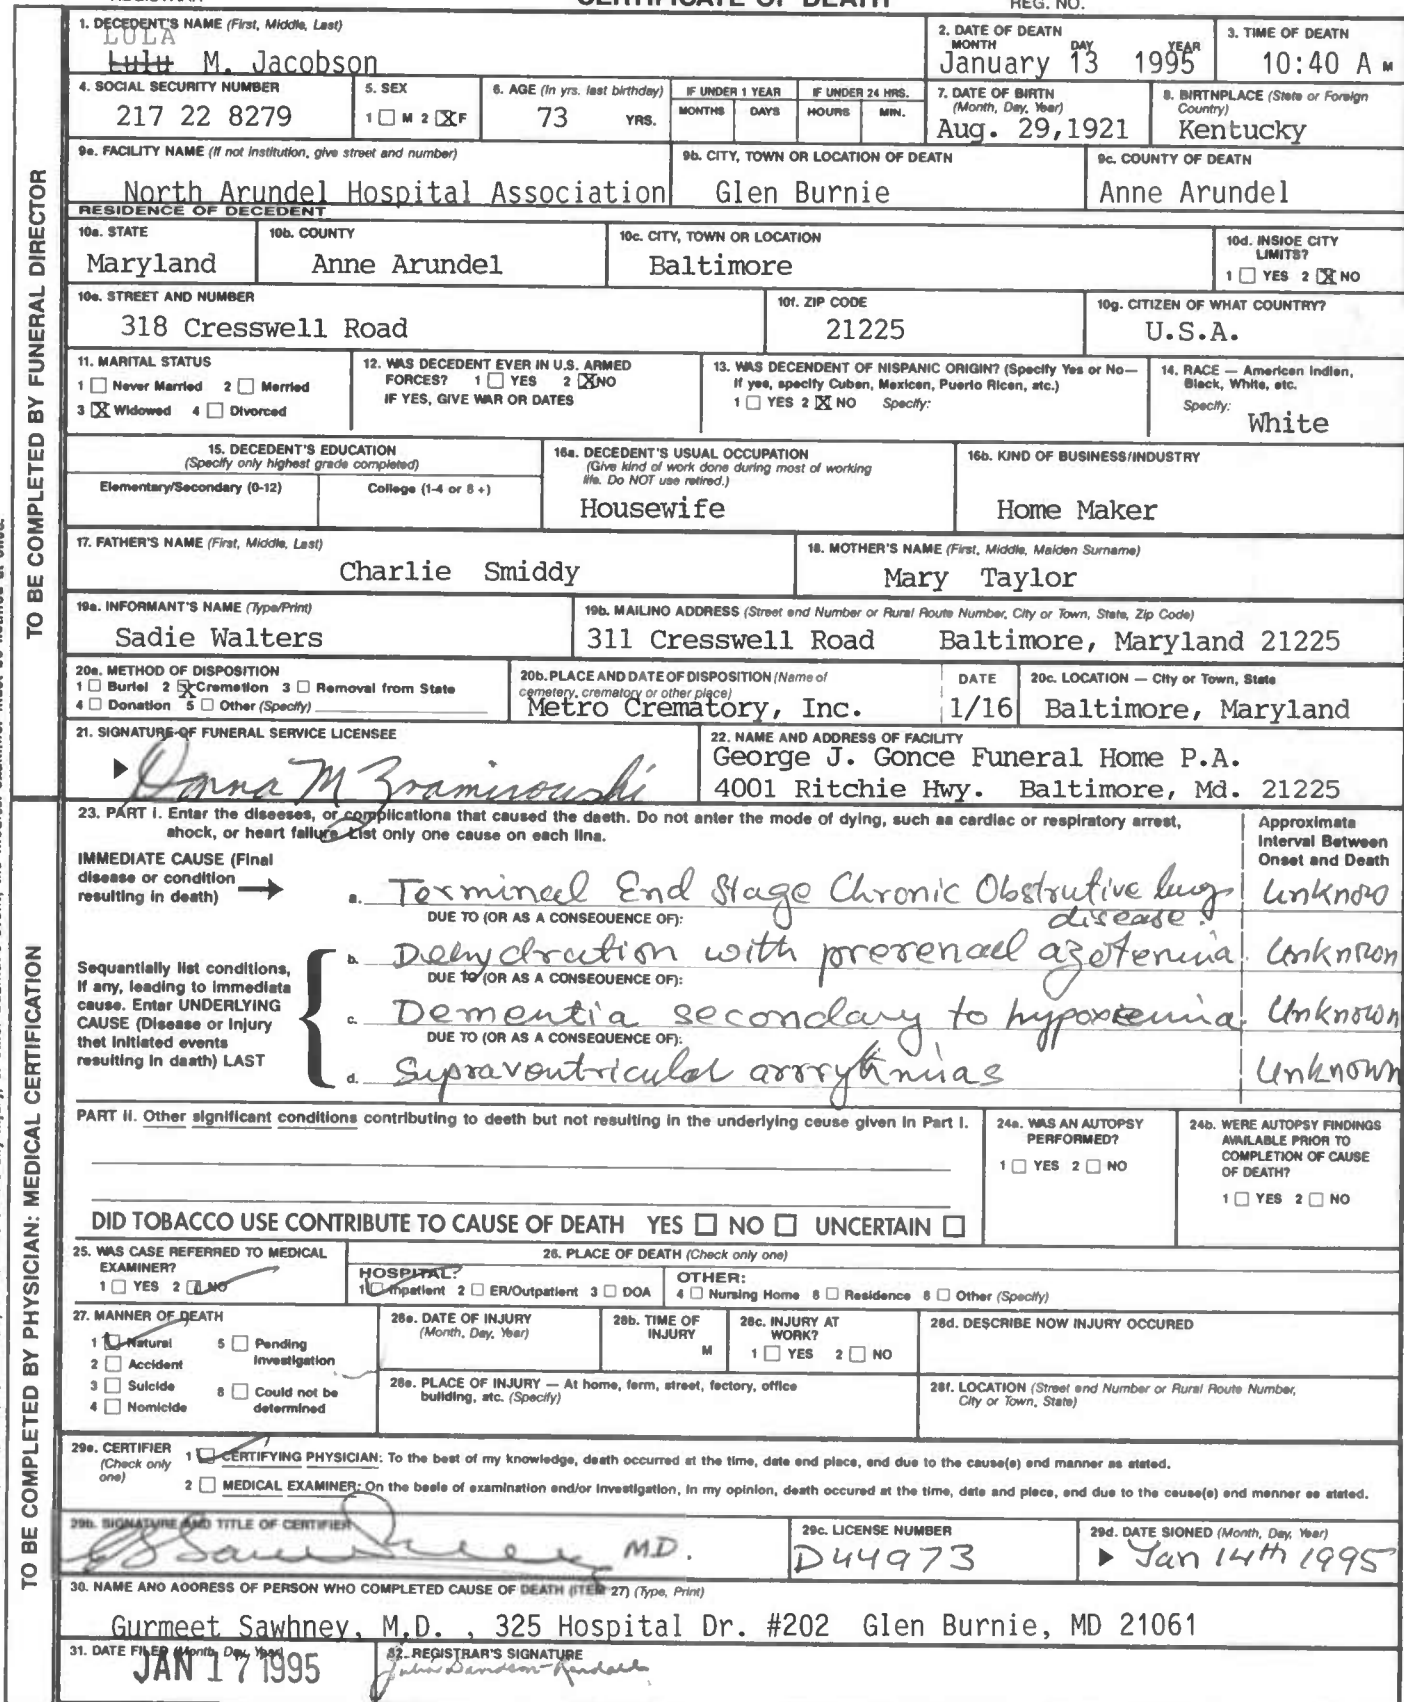 CERTIFICATE OF DEATH
REG. NO.
1. DECEDENT'S NAME (First, Middle, Last)
LULA
Lulu M. Jacobson
2. DATE OF DEATH
MONTH DAY YEAR
January 13 1995
3. TIME OF DEATH
10:40 A M
4. SOCIAL SECURITY NUMBER
217 22 8279
5. SEX
1 ☐ M 2 ☒ F
6. AGE (In yrs. last birthday)
73 YRS.
IF UNDER 1 YEAR
MONTHS DAYS
IF UNDER 24 HRS.
HOURS MIN.
7. DATE OF BIRTH
(Month, Day, Year)
Aug. 29,1921
8. BIRTHPLACE (State or Foreign
Country)
Kentucky
9a. FACILITY NAME (If not institution, give street and number)
North Arundel Hospital Association
9b. CITY, TOWN OR LOCATION OF DEATH
Glen Burnie
9c. COUNTY OF DEATH
Anne Arundel
RESIDENCE OF DECEDENT
10a. STATE
Maryland
10b. COUNTY
Anne Arundel
10c. CITY, TOWN OR LOCATION
Baltimore
10d. INSIDE CITY
LIMITS?
1 ☐ YES 2 ☒ NO
10e. STREET AND NUMBER
318 Cresswell Road
10f. ZIP CODE
21225
10g. CITIZEN OF WHAT COUNTRY?
U.S.A.
11. MARITAL STATUS
1 ☐ Never Married 2 ☐ Married
3 ☒ Widowed 4 ☐ Divorced
12. WAS DECEDENT EVER IN U.S. ARMED
FORCES? 1 ☐ YES 2 ☒ NO
IF YES, GIVE WAR OR DATES
13. WAS DECENDENT OF HISPANIC ORIGIN? (Specify Yes or No—
If yes, specify Cuban, Mexican, Puerto Rican, etc.)
1 ☐ YES 2 ☒ NO Specify:
14. RACE — American Indian,
Black, White, etc.
Specify:
White
15. DECEDENT'S EDUCATION
(Specify only highest grade completed)
Elementary/Secondary (0-12) College (1-4 or 5 +)
16a. DECEDENT'S USUAL OCCUPATION
(Give kind of work done during most of working
life. Do NOT use retired.)
Housewife
16b. KIND OF BUSINESS/INDUSTRY
Home Maker
17. FATHER'S NAME (First, Middle, Last)
Charlie Smiddy
18. MOTHER'S NAME (First, Middle, Maiden Surname)
Mary Taylor
19a. INFORMANT'S NAME (Type/Print)
Sadie Walters
19b. MAILING ADDRESS (Street and Number or Rural Route Number, City or Town, State, Zip Code)
311 Cresswell Road Baltimore, Maryland 21225
20a. METHOD OF DISPOSITION
1 ☐ Burial 2 ☒ Cremation 3 ☐ Removal from State
4 ☐ Donation 5 ☐ Other (Specify)
20b. PLACE AND DATE OF DISPOSITION (Name of
cemetery, crematory or other place)
Metro Crematory, Inc.
DATE
1/16
20c. LOCATION — City or Town, State
Baltimore, Maryland
21. SIGNATURE OF FUNERAL SERVICE LICENSEE
Donna M
22. NAME AND ADDRESS OF FACILITY
George J. Gonce Funeral Home P.A.
4001 Ritchie Hwy. Baltimore, Md. 21225
TO BE COMPLETED BY FUNERAL DIRECTOR
23. PART I. Enter the diseases, or complications that caused the death. Do not enter the mode of dying, such as cardiac or respiratory arrest,
shock, or heart failure. List only one cause on each line.
Approximate
Interval Between
Onset and Death
IMMEDIATE CAUSE (Final
disease or condition
resulting in death) →
a. Terminal End Stage Chronic Obstrutive lung disease. Unknow
DUE TO (OR AS A CONSEQUENCE OF):
Sequentially list conditions,
if any, leading to immediate
cause. Enter UNDERLYING
CAUSE (Disease or injury
that initiated events
resulting in death) LAST
b. Dehydration with prerenal azotemia. Unknown
DUE TO (OR AS A CONSEQUENCE OF):
c. Dementia secondary to hypoxemia. Unknown
DUE TO (OR AS A CONSEQUENCE OF):
d. Supraventricular arrrythmias Unknown
PART II. Other significant conditions contributing to death but not resulting in the underlying cause given in Part I.
24a. WAS AN AUTOPSY
PERFORMED?
1 ☐ YES 2 ☐ NO
24b. WERE AUTOPSY FINDINGS
AVAILABLE PRIOR TO
COMPLETION OF CAUSE
OF DEATH?
1 ☐ YES 2 ☐ NO
DID TOBACCO USE CONTRIBUTE TO CAUSE OF DEATH YES ☐ NO ☐ UNCERTAIN ☐
25. WAS CASE REFERRED TO MEDICAL
EXAMINER?
1 ☐ YES 2 ☑ NO
26. PLACE OF DEATH (Check only one)
HOSPITAL:
1 ☑ Inpatient 2 ☐ ER/Outpatient 3 ☐ DOA
OTHER:
4 ☐ Nursing Home 5 ☐ Residence 6 ☐ Other (Specify)
27. MANNER OF DEATH
1 ☑ Natural 5 ☐ Pending
Investigation
2 ☐ Accident
3 ☐ Suicide 6 ☐ Could not be
determined
4 ☐ Homicide
28a. DATE OF INJURY
(Month, Day, Year)
28b. TIME OF
INJURY
M
28c. INJURY AT
WORK?
1 ☐ YES 2 ☐ NO
28d. DESCRIBE HOW INJURY OCCURED
28e. PLACE OF INJURY — At home, farm, street, factory, office
building, etc. (Specify)
28f. LOCATION (Street and Number or Rural Route Number,
City or Town, State)
29a. CERTIFIER
(Check only
one)
1 ☑ CERTIFYING PHYSICIAN: To the best of my knowledge, death occurred at the time, date and place, and due to the cause(s) and manner as stated.
2 ☐ MEDICAL EXAMINER: On the basis of examination and/or investigation, in my opinion, death occured at the time, date and place, and due to the cause(s) and manner as stated.
29b. SIGNATURE AND TITLE OF CERTIFIER
M.D.
29c. LICENSE NUMBER
D44973
29d. DATE SIGNED (Month, Day, Year)
Jan 14th 1995
30. NAME AND ADDRESS OF PERSON WHO COMPLETED CAUSE OF DEATH (ITEM 27) (Type, Print)
Gurmeet Sawhney, M.D. , 325 Hospital Dr. #202 Glen Burnie, MD 21061
31. DATE FILED (Month, Day, Year)
JAN 17 1995
32. REGISTRAR'S SIGNATURE
TO BE COMPLETED BY PHYSICIAN: MEDICAL CERTIFICATION